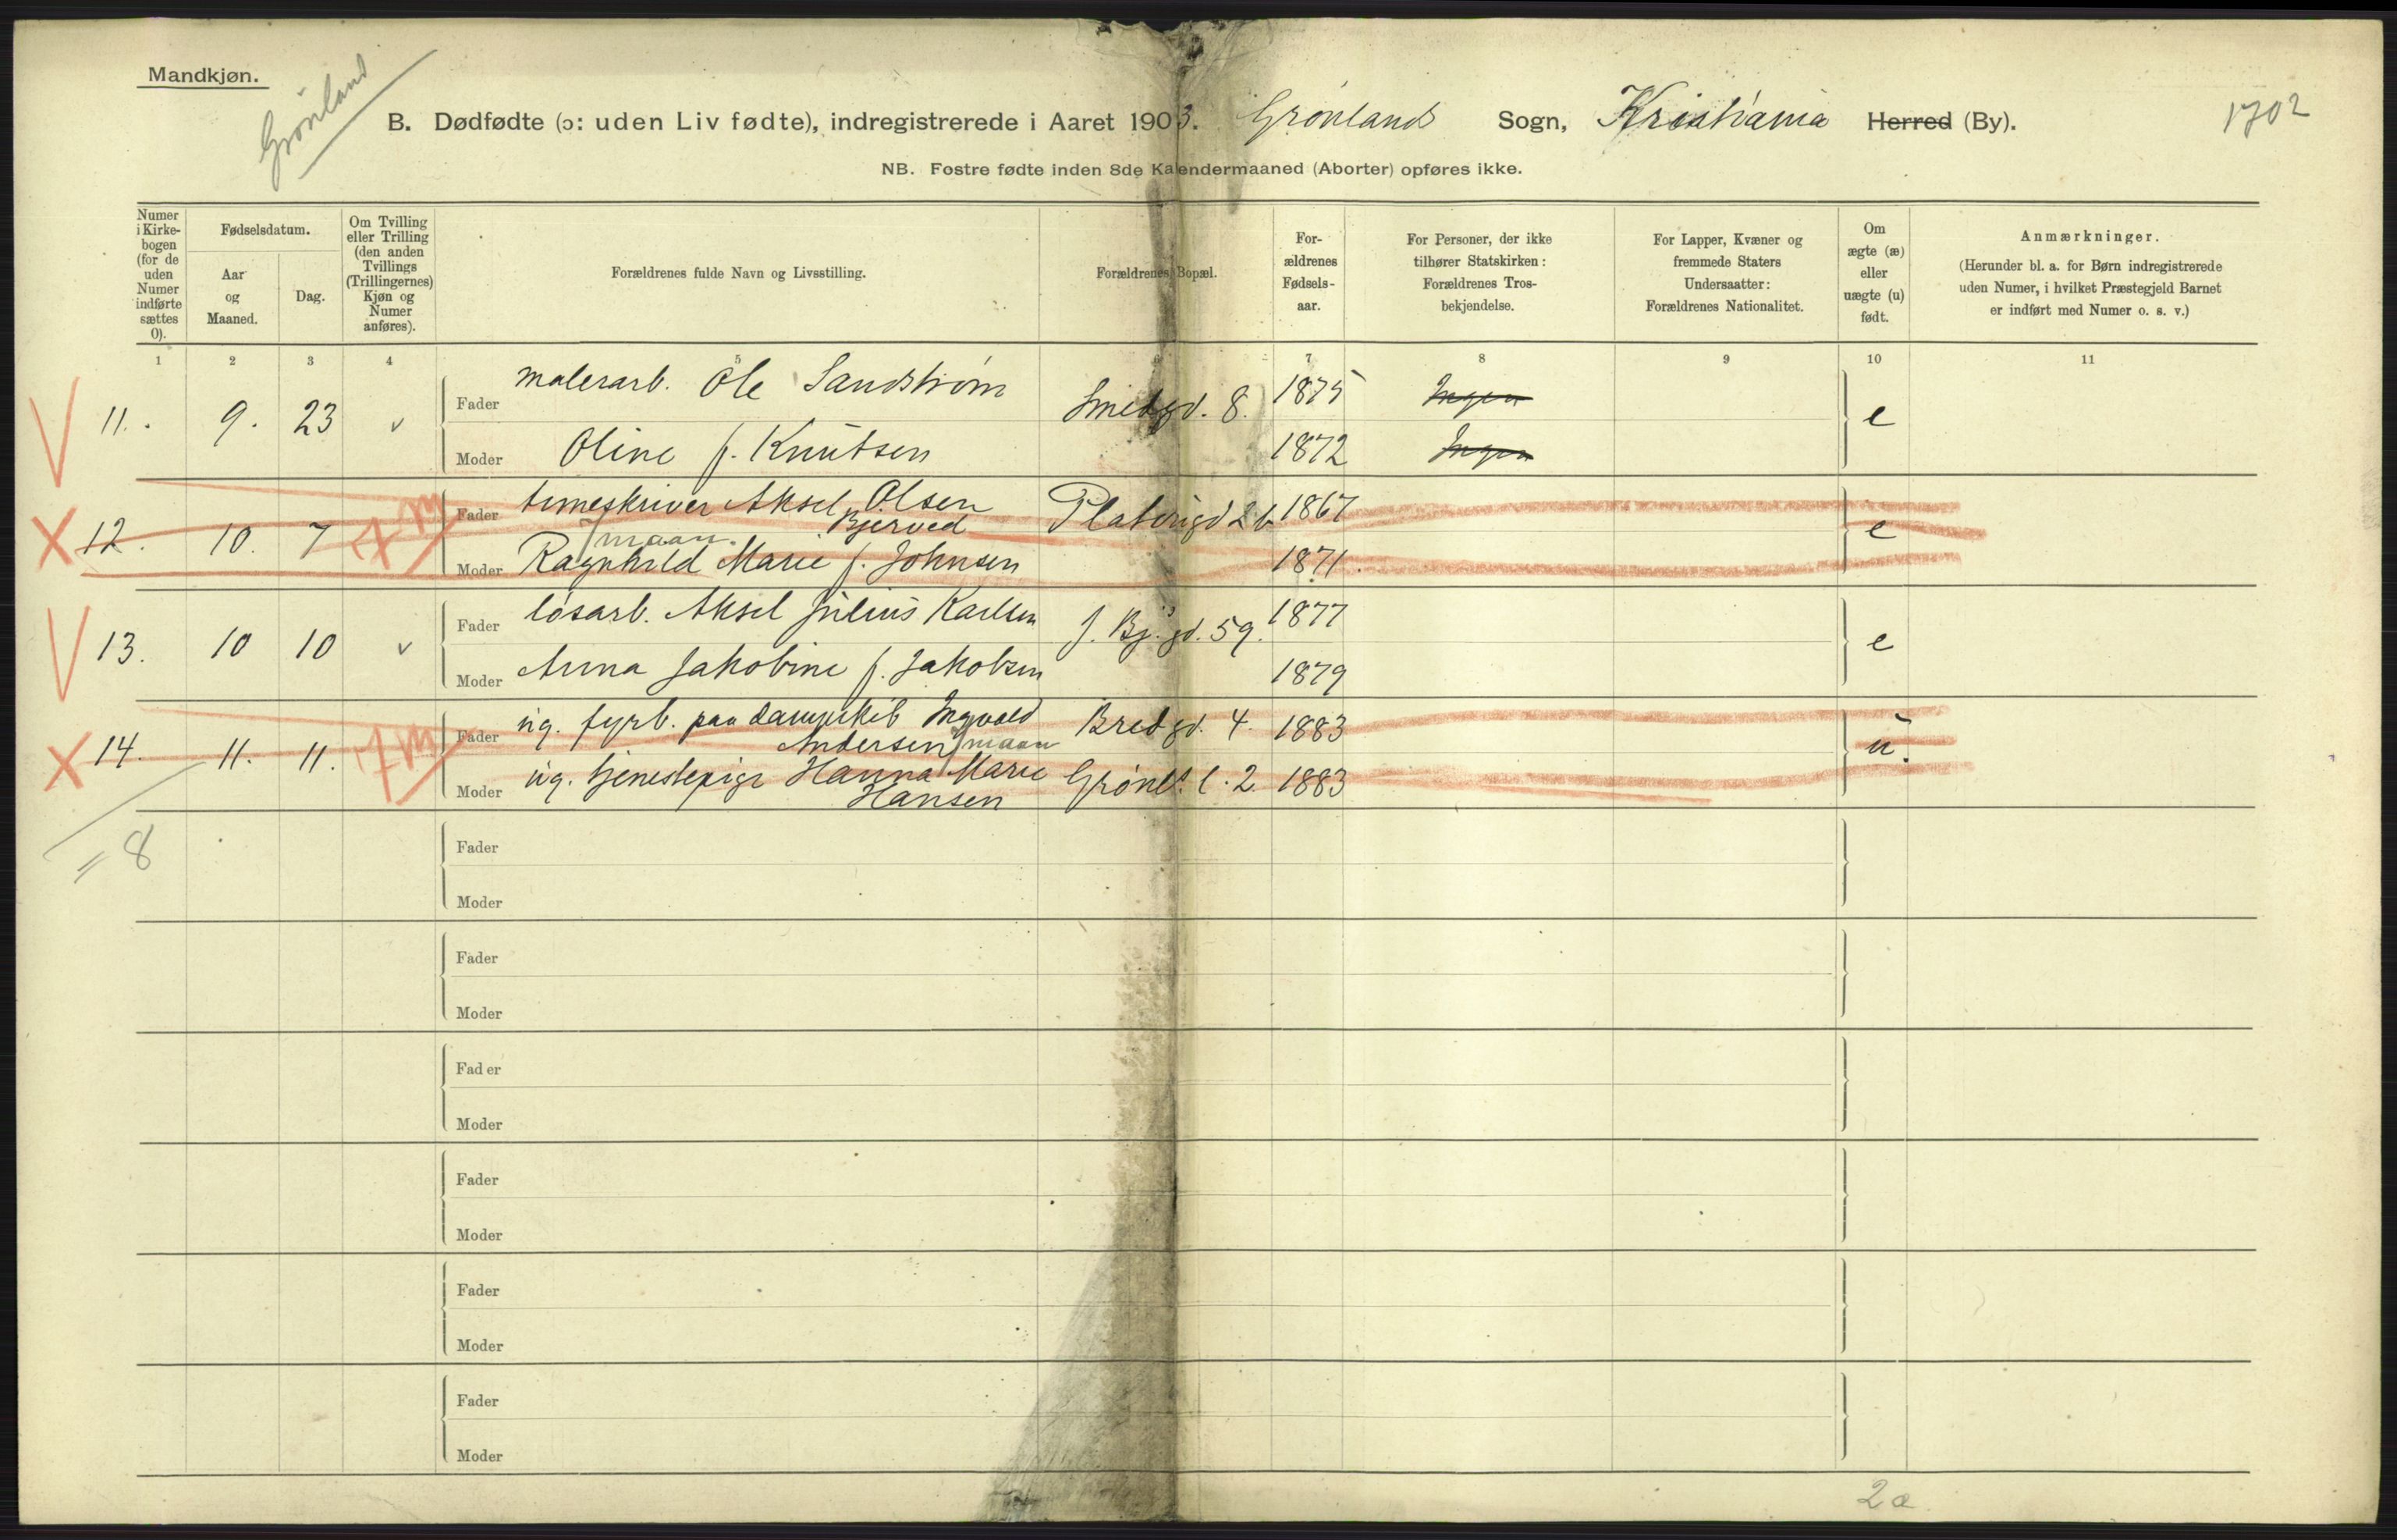 Mandkjøn.
Grønland
B. Dødfødte (ɔ: uden Liv fødte), indregistrerede i Aaret 1903. Grønlands Sogn, Kristiania Herred (By).
1702
NB. Fostre fødte inden 8de Kalendermaaned (Aborter) opføres ikke.
Numer i Kirkebogen (for de uden Numer indførte sættes 0).
Fødselsdatum.
Aar og Maaned.
Dag.
Om Tvilling eller Trilling (den anden Tvillings (Trillingernes) Kjøn og Numer anføres).
Forældrenes fulde Navn og Livsstilling.
Forældrenes Bopæl.
Forældrenes Fødselsaar.
For Personer, der ikke tilhører Statskirken: Forældrenes Trosbekjendelse.
For Lapper, Kvæner og fremmede Staters Undersaatter: Forældrenes Nationalitet.
Om ægte (æ) eller uægte (u) født.
Anmærkninger.
(Herunder bl. a. for Børn indregistrerede uden Numer, i hvilket Præstegjeld Barnet er indført med Numer o. s. v.)
1 2 3 4 5 6 7 8 9 10 11
11. 9. 23 v Fader malerarb. Ole Sandstrøm Smedgd. 8. 1875 Ingen e
Moder Oline f. Knutsen 1872 Ingen
X 12. 10. 7 7 m Fader timeskriver Aksel Olsen Bjerved Platougd 2 b 1867 e
7 maan.
Moder Ragnhild Marie f. Johnsen 1871.
13. 10 10 v Fader løsarb. Aksel Julius Karlsen J. Bj. gd. 59. 1877 e
Moder Anna Jakobine f. Jakobsen 1879
X 14. 11. 11. 7 m Fader ug. fyrb. paa dampskib Ingvald Andersen Bredgd. 4. 1883 u.
7 maan
Moder ug. tjenestepige Hanna Marie Hansen Grønl. l. 2. 1883
= 8
Fader
Moder
Fader
Moder
Fader
Moder
Fader
Moder
Fader
Moder
Fader
Moder
2 a.